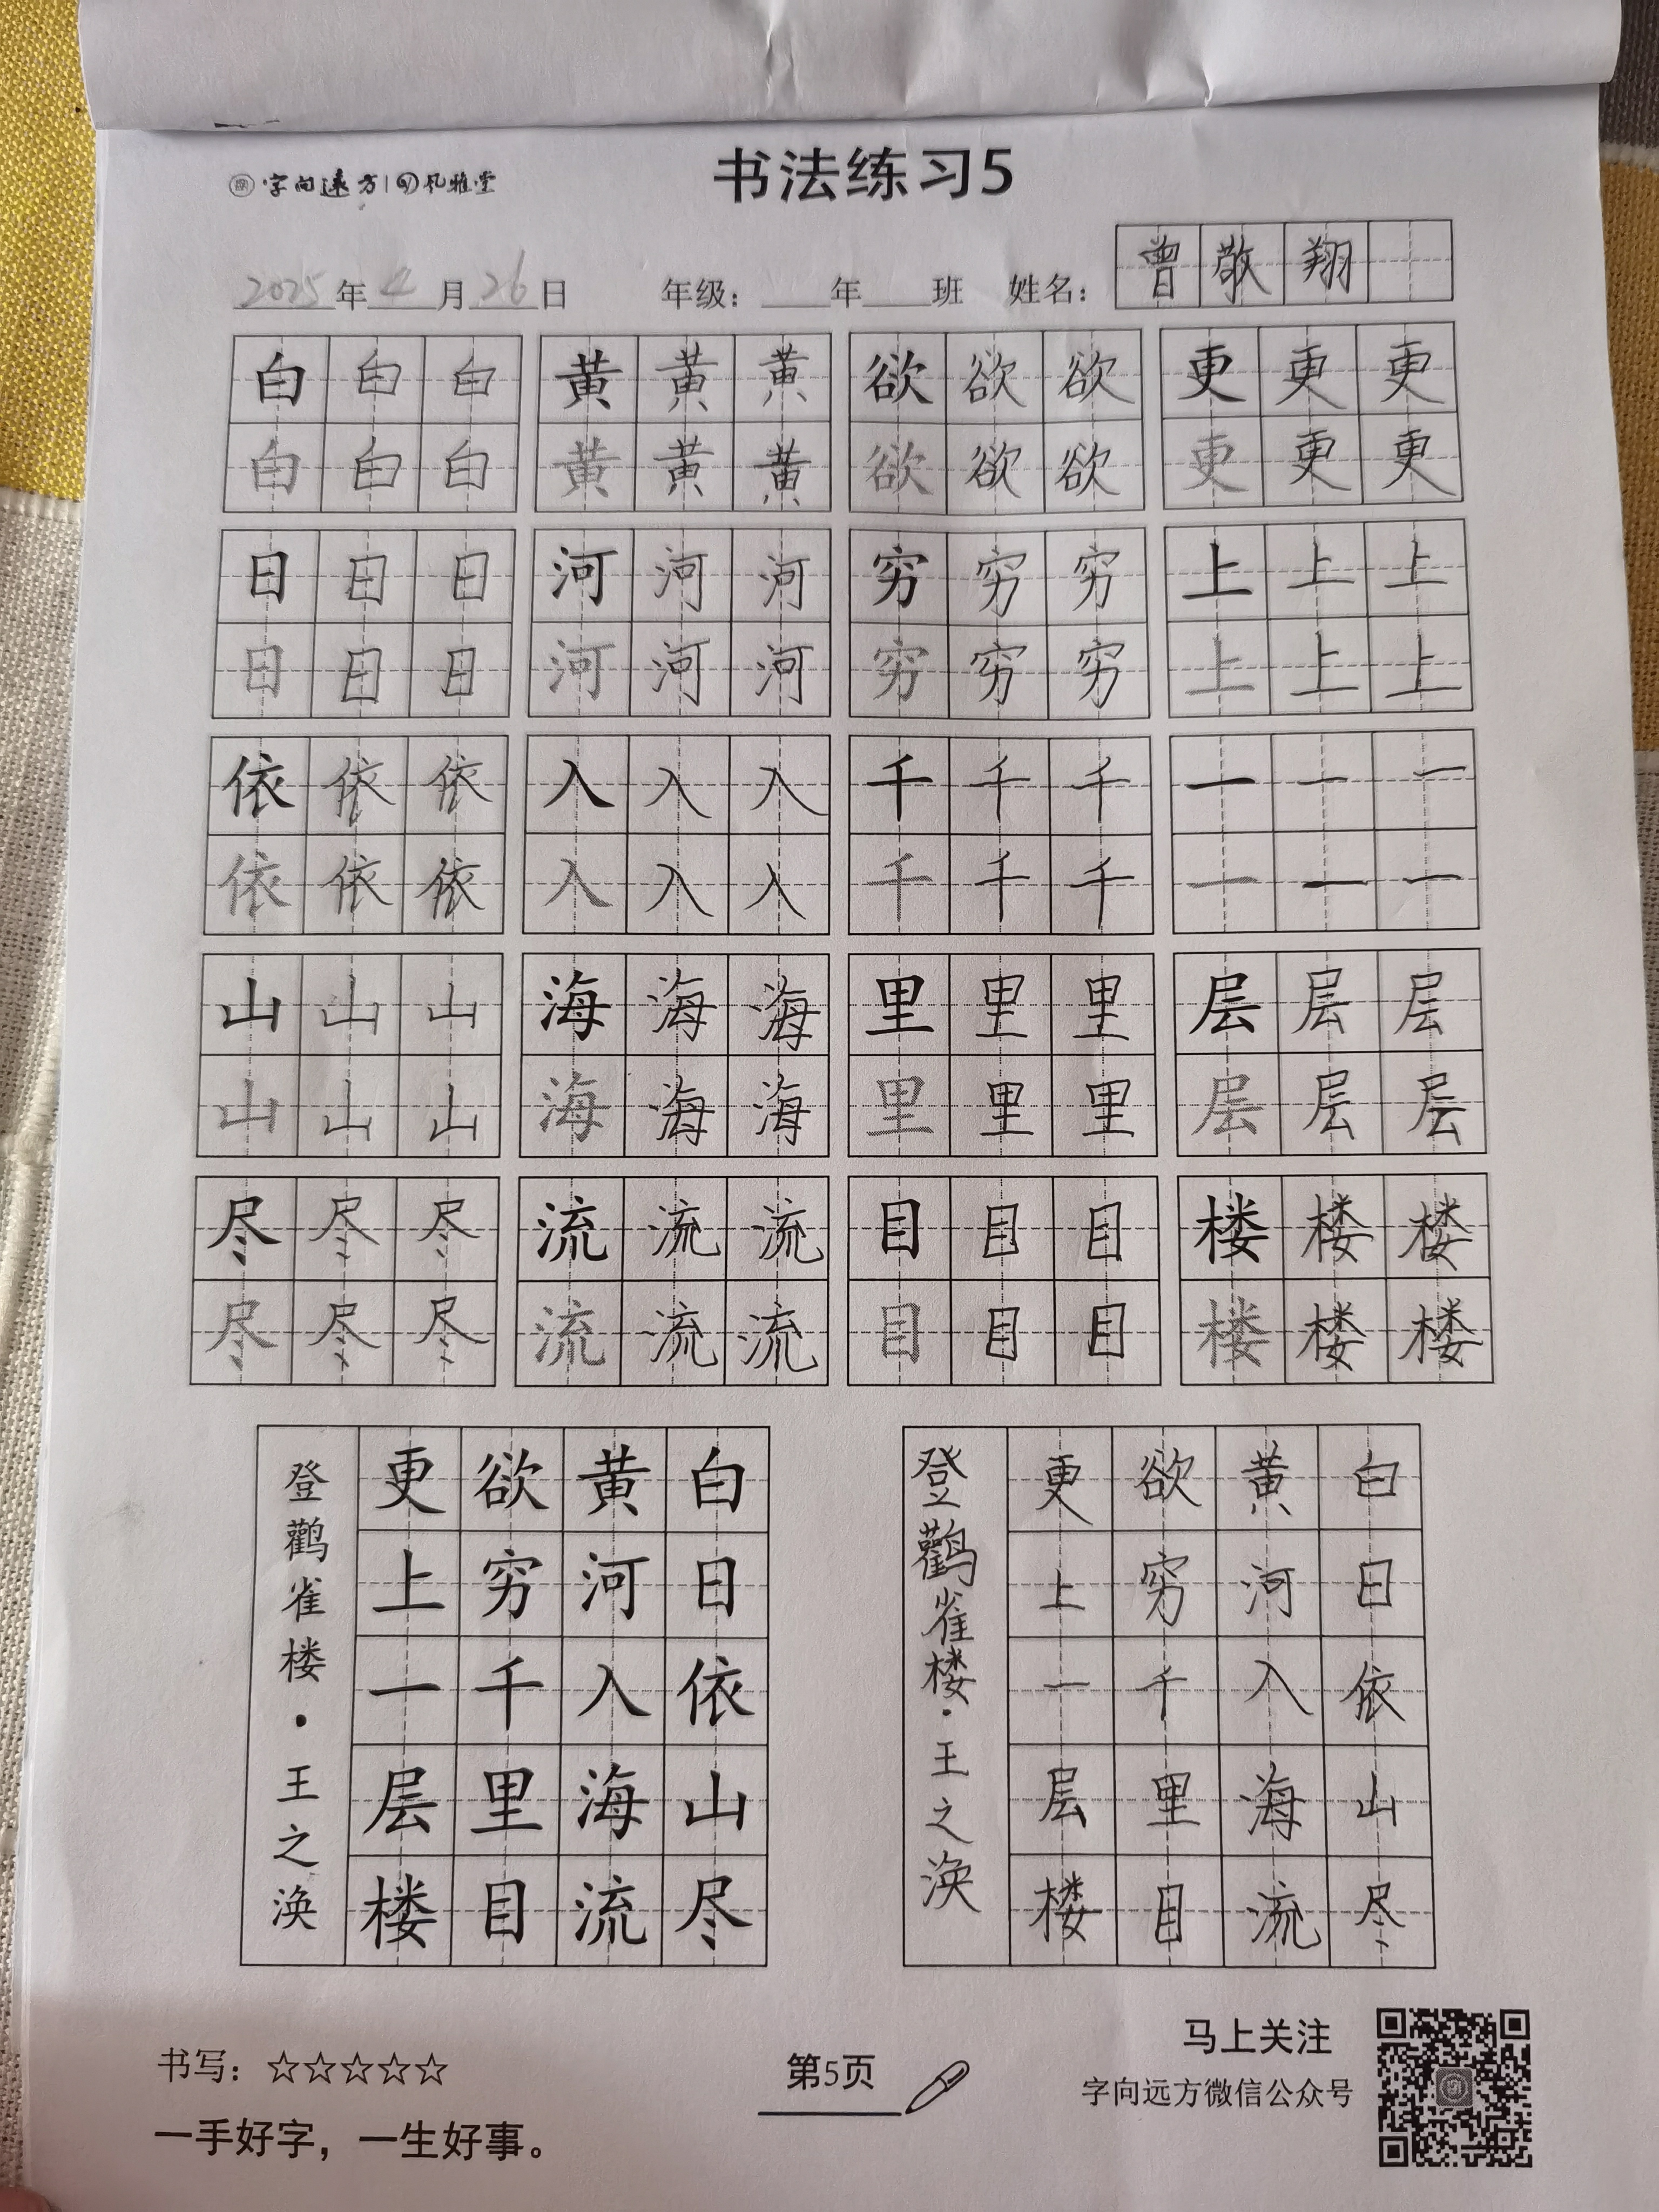 字向远方 风雅堂
书法练习5
2025年4月26日 年级：____年____班 姓名：曾敬翔
白白白 黄黄黄 欲欲欲 更更更
白白白 黄黄黄 欲欲欲 更更更
日日日 河河河 穷穷穷 上上上
日日日 河河河 穷穷穷 上上上
依依依 入入入 千千千 一一一
依依依 入入入 千千千 一一一
山山山 海海海 里里里 层层层
山山山 海海海 里里里 层层层
尽尽尽 流流流 目目目 楼楼楼
尽尽尽 流流流 目目目 楼楼楼
白日依山尽
黄河入海流
欲穷千里目
更上一层楼
登鹳雀楼·王之涣
白日依山尽
黄河入海流
欲穷千里目
更上一层楼
登鹳雀楼·王之涣
书写：☆☆☆☆☆
一手好字，一生好事。
第5页
马上关注
字向远方微信公众号